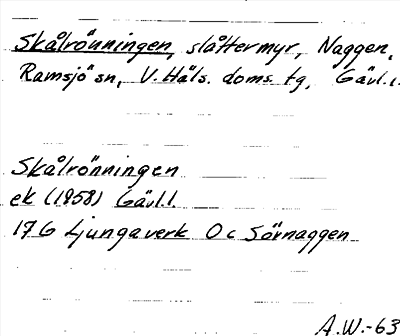 Skålrönningen, slåttermyr, Naggen,
Ramsjö sn, V. Häls. doms. tg, Gävl.l.
Skålrönningen
ek (1958) Gävl.l.
17G Ljungaverk Oc Sörnaggen
A.W.-63